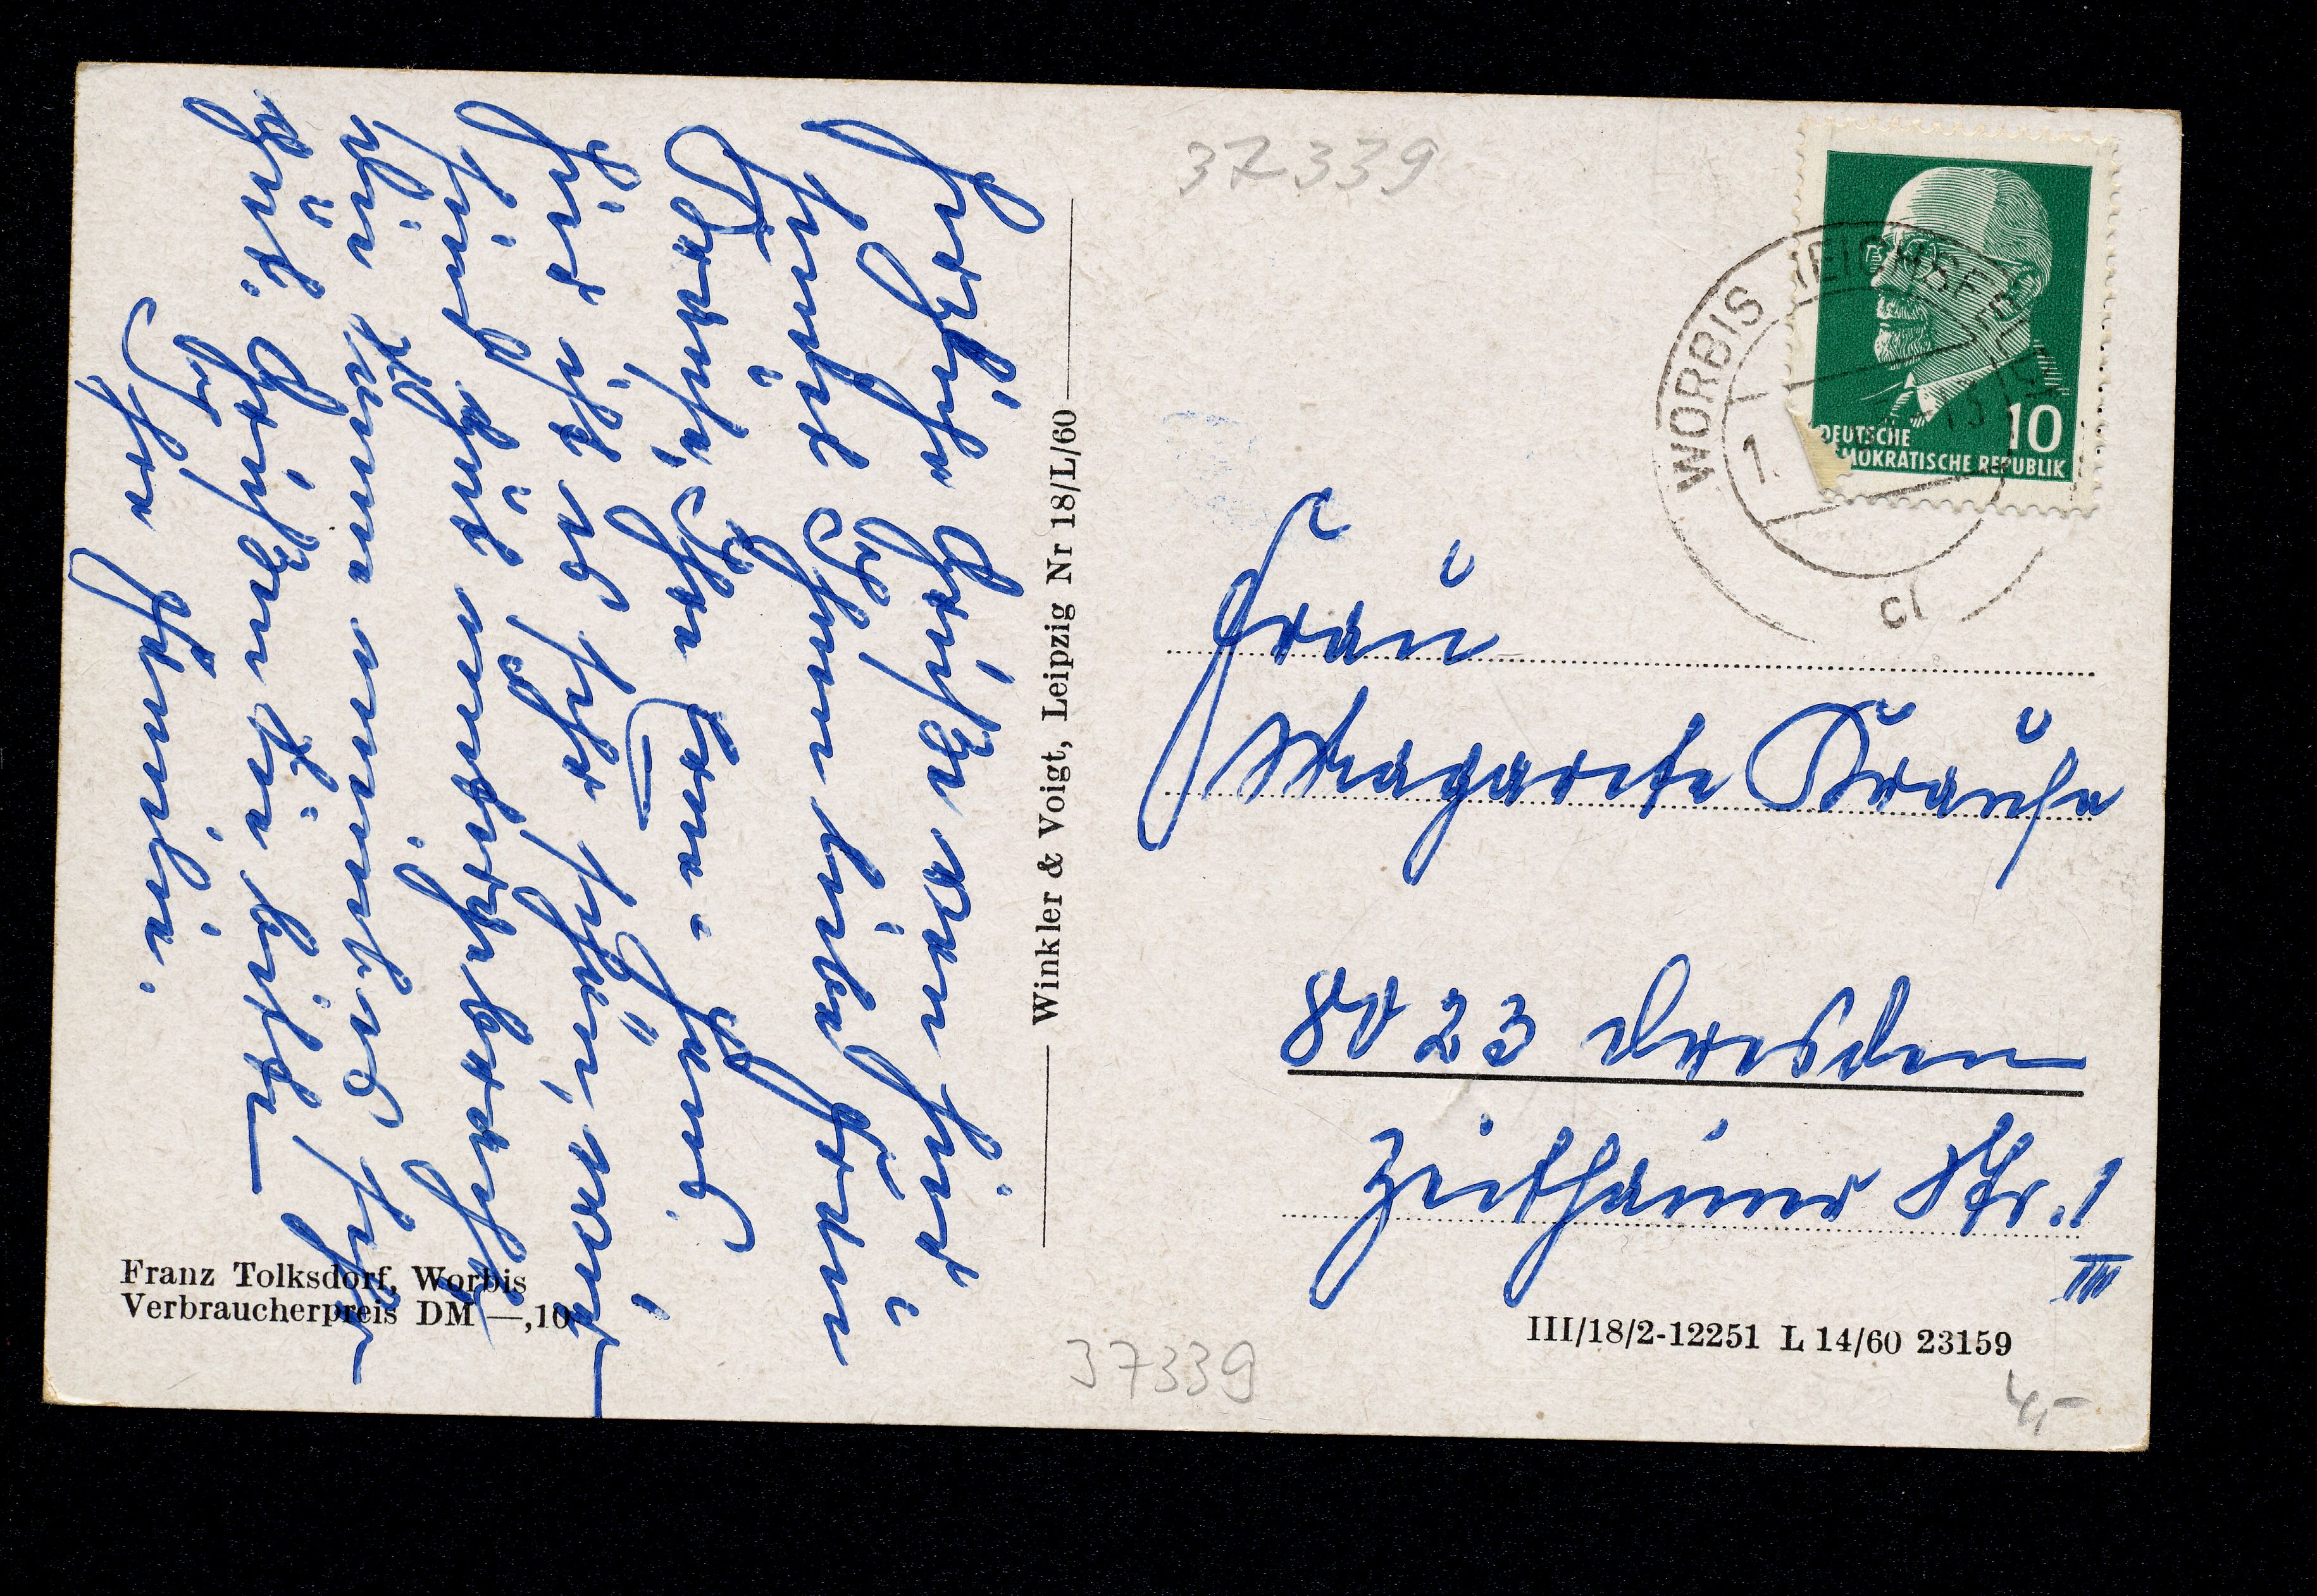 37339
WORBIS (EICHSFELD)
1.
DEUTSCHE
DEMOKRATISCHE REPUBLIK
10
Herzliche Grüße von hier
sendet Ihnen liebe Frau
Krause, Ihre
Hier ist es sehr schön, wir
sind gut untergebracht,
die sehr
gut. Grüßen Sie bitte
Ihre Familie.
Winkler & Voigt, Leipzig Nr 18/L/60
Frau
Margarete Krause
8023 Dresden
Zeithainer Str. 1
III
Franz Tolksdorf, Worbis
Verbraucherpreis DM —,10
III/18/2-12251 L 14/60 23159
37339
4,-